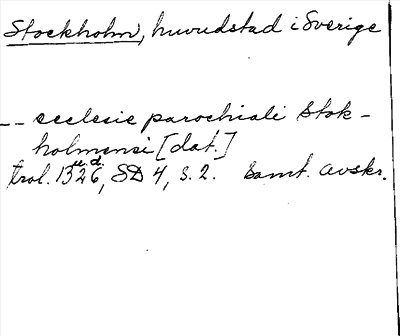 Stockholm, huvudstad i Sverige
-- ecclesie parochiali Stok-
holmensi [dat.]
u.d.
trol. 1326, SD 4, s. 2. Samt. avskr.